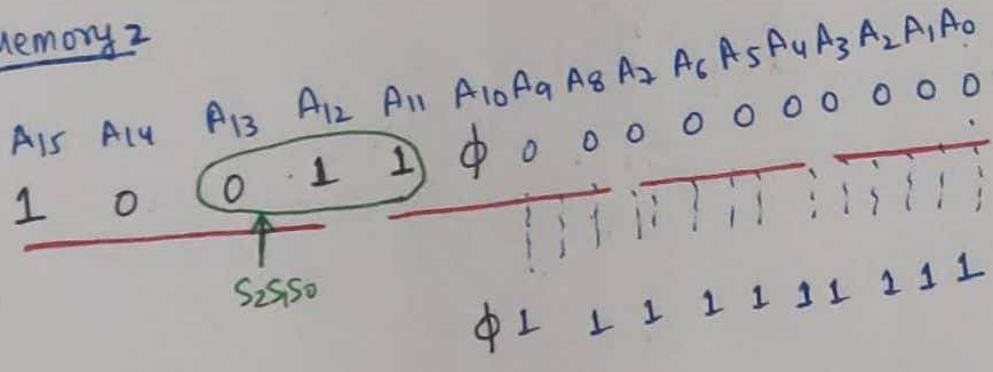 Memory 2
A15 A14 A13 A12 A11 A10 A9 A8 A7 A6 A5 A4 A3 A2 A1 A0
1 0 0 1 1 ϕ 0 0 0 0 0 0 0 0 0 0
S2S1S0
ϕ 1 1 1 1 1 1 1 1 1 1